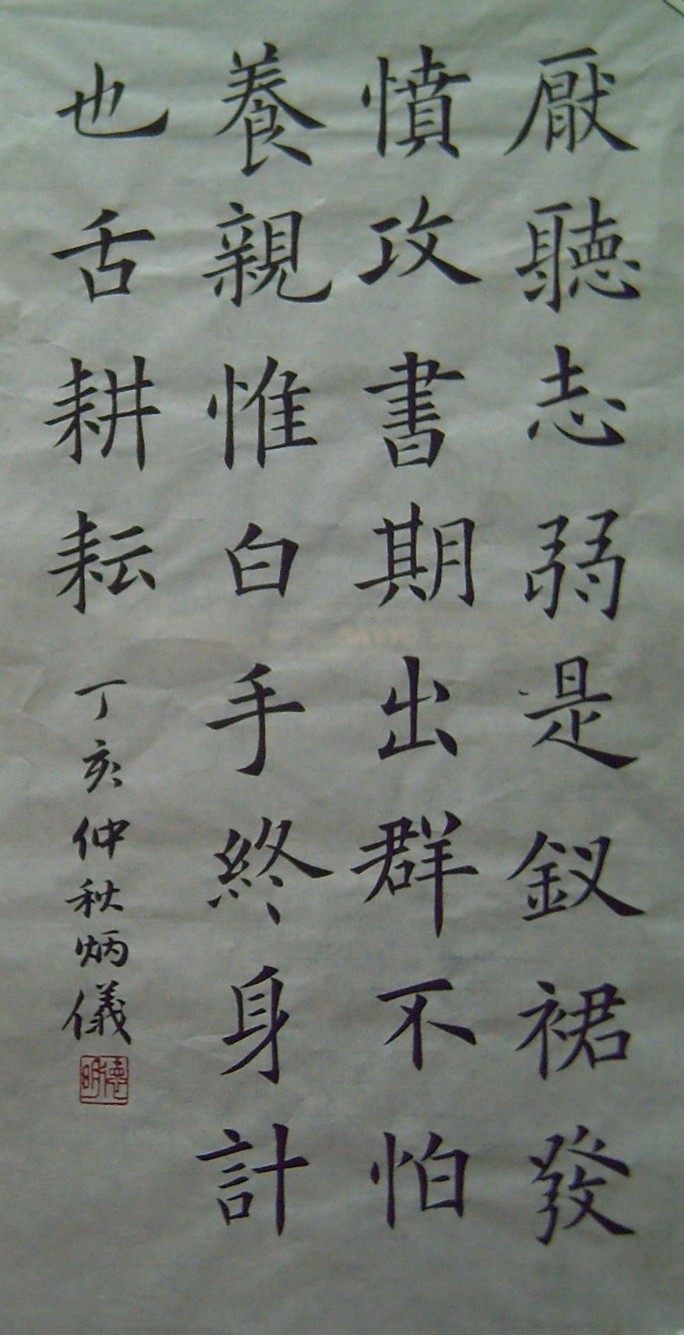 厭聽志弱是釵裙發
憤攻書期出群不怕
養親惟白手終身計
也舌耕耘
丁亥仲秋炳儀